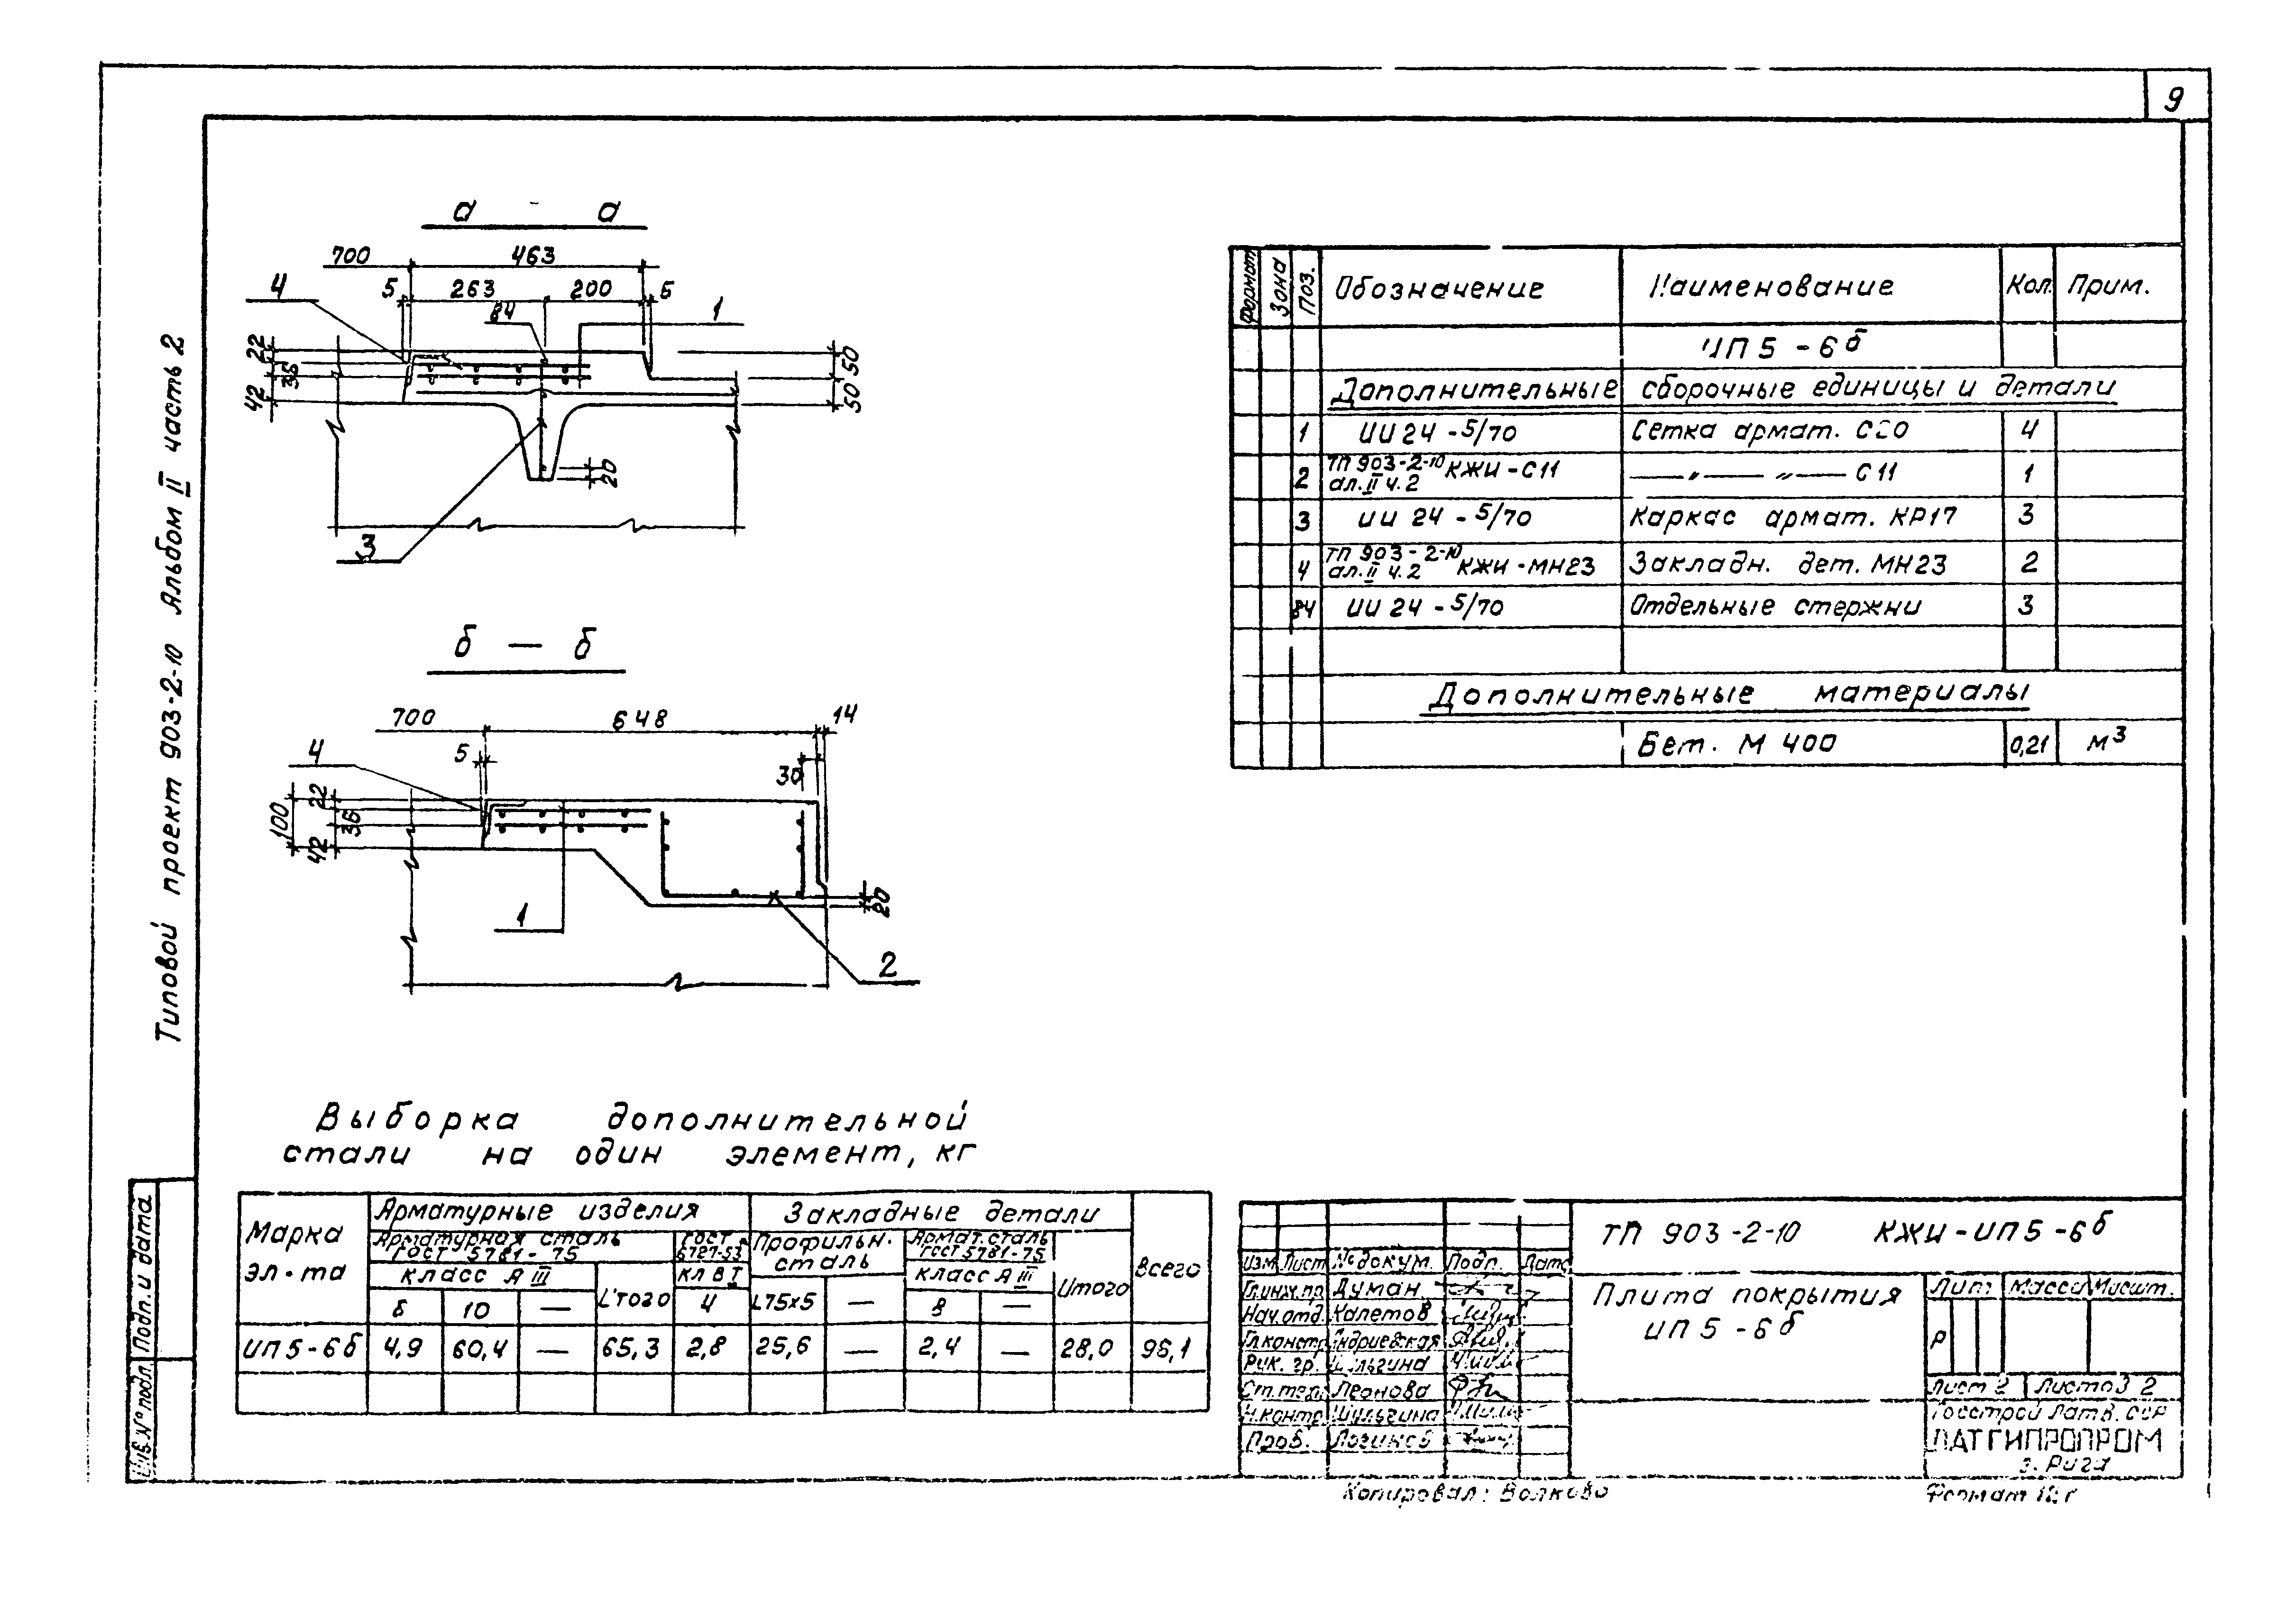 9
Типовой проект 903-2-10 Альбом II часть 2
а - а
700 463
5 263 200 5
4 84 1
22 36 42
50 50
20
3
б — б
700 648 14
5 30
4
100 22 36 42
20
1
2
Формат Зона Поз. Обозначение Наименование Кол. Прим.
ИП5-6б
Дополнительные сборочные единицы и детали
1 ИИ24-5/70 Сетка армат. 4
2 ТП 903-2-10 ал. II ч.2 КЖИ-С11 —〃— 〃— С11 1
3 ИИ24-5/70 Каркас армат. КР17 3
4 ТП 903-2-10 ал. II ч.2 КЖИ-МН23 Закладн. дет. МН23 2
84 ИИ24-5/70 Отдельные стержни 3
Дополнительные материалы
Бет. М 400 0,21 м3
Выборка дополнительной
стали на один элемент, кг
Марка эл-та Арматурные изделия Закладные детали Всего
Арматурная сталь ГОСТ 5781-75 ГОСТ 6727-53 Профильн. сталь Армат. сталь ГОСТ 5781-75 Итого
класс А III Итого кл В I класс А III
10 — 4 L75x5 — 8 —
ИП5-6б 4,9 60,4 — 65,3 2,8 25,6 — 2,4 — 28,0 96,1
ТП 903-2-10 КЖИ-ИП5-6б
Изм Лист № докум. Подп. Дата
Гл.инж.пр. Думан
Нач.отд. Калетов
Гл.констр. Андриевская
Рук. гр. Шульгина
Ст.тех. Леонова
Н.контр. Шульгина
Пров. Логинов
Плита покрытия
ИП5-6б
Лит Масса Масшт.
Р
Лист 2 Листов 2
Госстрой Латв. ССР
ЛАТГИПРОПРОМ
г. Рига
Копировал: Волкова
Формат 12г
Подп. и дата
Инв.№ подл.